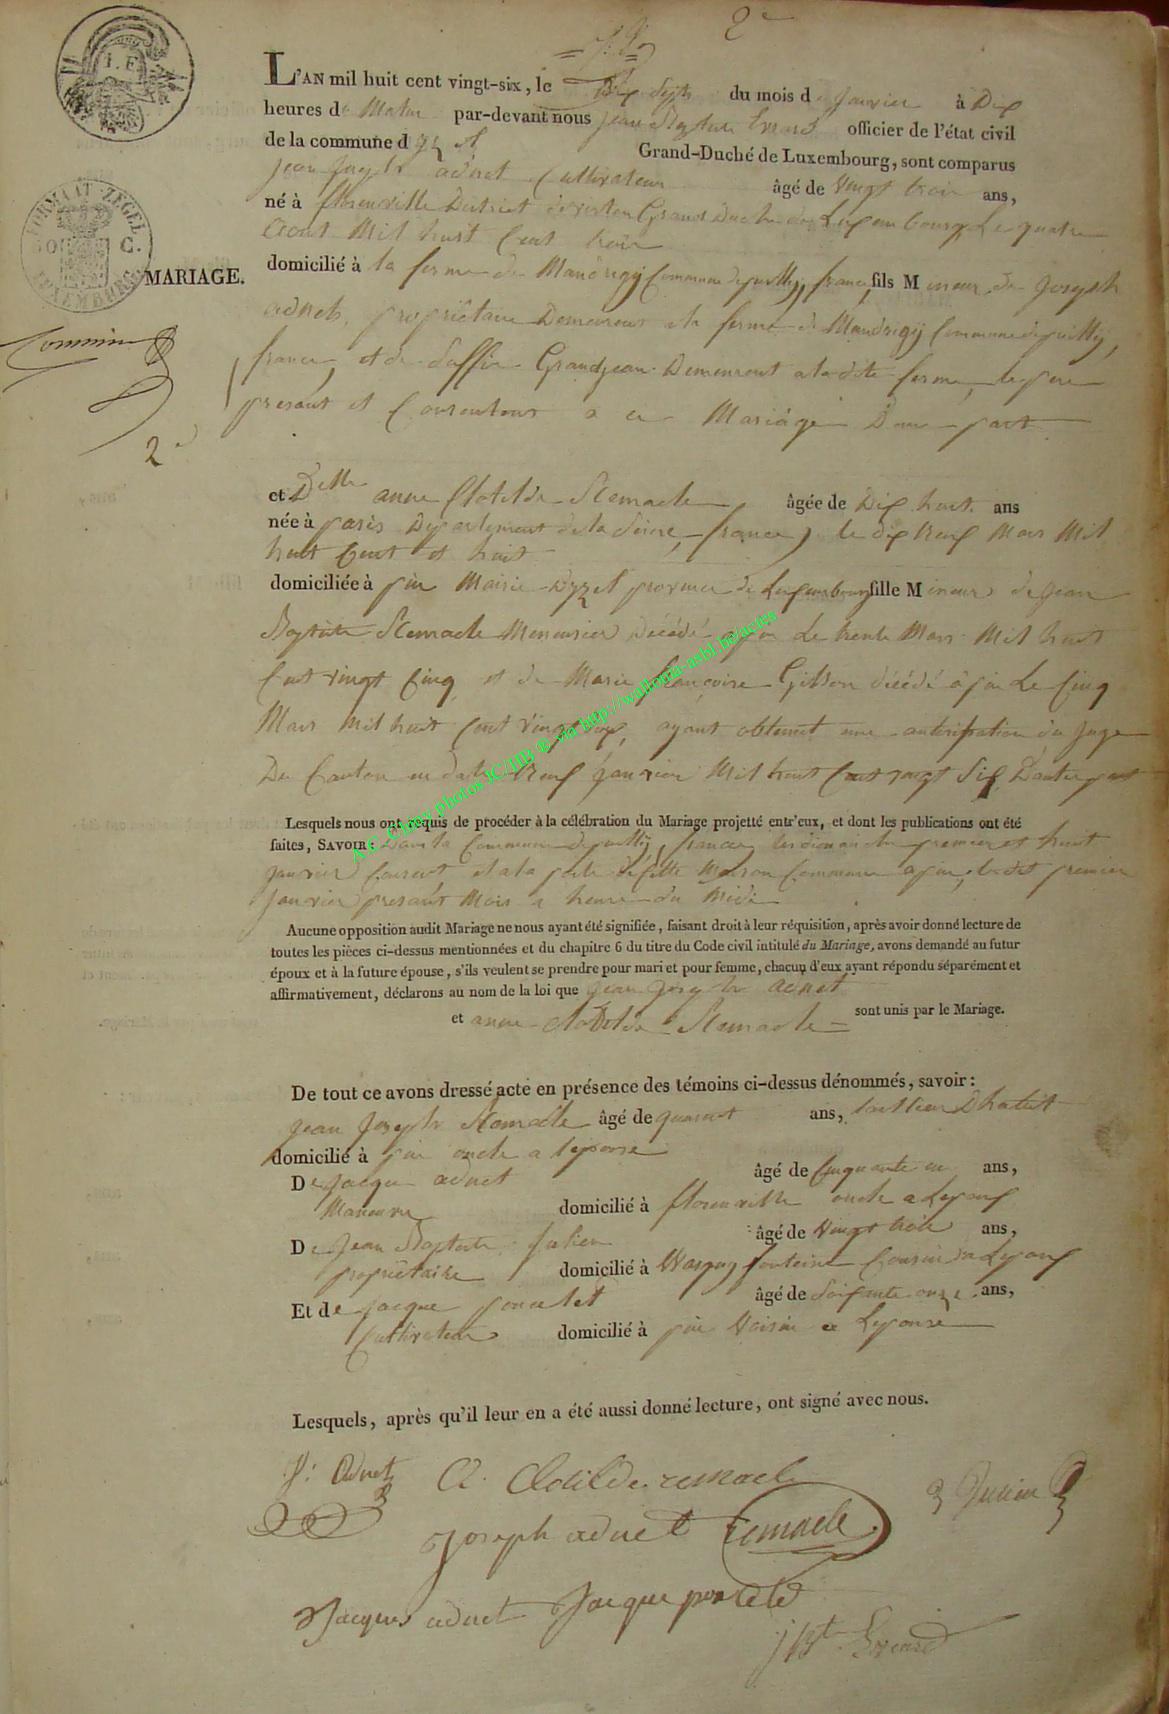 2e
L'AN mil huit cent vingt-six, le Dix Sept du mois de Janvier à Dix
heures de Matin par-devant nous jean Baptiste Evrard officier de l'état civil
de la commune d'Izel Grand-Duché de Luxembourg, sont comparus
jean joseph adnet Cultivateur âgé de Vingt trois ans,
né à florenville District de virton Grand Duché de Luxembourg Le quatre
aout Mil huit Cent trois
domicilié à la ferme de Mandregy Commune de puilly, france, fils Mineur de Joseph
adnet, propriétaire Demeurant a la ferme de Mandregy Commune de puilly,
france, et de Grandjean Demeurant a la dite ferme, le pere
présent et Consentant a ce Mariage D'une part
MARIAGE.
FORMAAT-ZEGEL
50 C.
LUXEMBURG
2e
et Delle anne Clotilde Remacle âgée de Dix huit ans
née à paris Département de la Seine, france, le dix neuf Mars Mil
huit Cent et huit
domiciliée à pin Mairie Dyzel province de Luxembourg fille Mineure de jean
Baptiste Remacle Menuisier Décédé a pin Le trente Mars Mil huit
Cent vingt Cinq, et de Marie françoise Gilson décédé à pin Le Cinq
Mars Mil huit Cent vingt, ayant obtenut une autorisation du juge
Du Canton en date neuf janvier Mil huit Cent vingt Six, D'autre part
Lesquels nous ont requis de procéder à la célébration du Mariage projetté entr'eux, et dont les publications ont été
faites, SAVOIR: Dans la Commune de puilly, france, les dimanche premier et huit
janvier Courant et a la porte de cette Maison Commune a pin, le dit premier
Janvier présent Mois a heure du Midi
Aucune opposition audit Mariage ne nous ayant été signifiée, faisant droit à leur réquisition, après avoir donné lecture de
toutes les pièces ci-dessus mentionnées et du chapitre 6 du titre du Code civil intitulé du Mariage, avons demandé au futur
époux et à la future épouse, s'ils veulent se prendre pour mari et pour femme, chacun d'eux ayant répondu séparément et
affirmativement, déclarons au nom de la loi que jean joseph adnet
et anne Clotilde Remacle sont unis par le Mariage.
De tout ce avons dressé acte en présence des témoins ci-dessus dénommés, savoir:
jean Joseph Remacle âgé de quarant ans, tailleur D'habit
domicilié à pin oncle a l'epouse
De jacque adnet âgé de Cinquante un ans,
Manœuvre domicilié à florenville oncle a Lepoux
De jean Baptiste julien âgé de Vingt trois ans,
propriétaire domicilié à Watrinsart fontaine Cousin a Lepoux
Et de jacque poncelet âgé de Soixante onze ans,
Cultivateur domicilié à pin Voisin a Lepouse
Lesquels, après qu'il leur en a été aussi donné lecture, ont signé avec nous.
J: Adnet A. Clotilde remacle Julien
Joseph adnet remacle
Jacques adnet Jacque poncelet
J Bt Evrard
A.C. Chiny photos JC/HB © via http://wallonia-asbl.be/actes